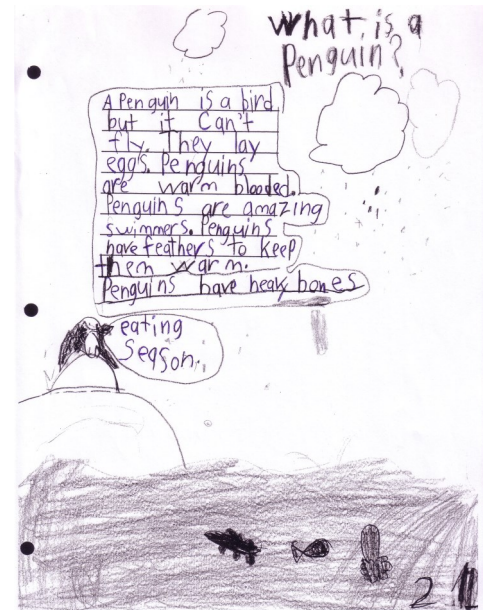 What is a
Penguin?
A Penguin is a bird
but it Can't
fly. They lay
eggs. Penguins
are warm blooded.
Penguins are amazing
swimmers. Penguins
have feathers to keep
them warm.
Penguins have heavy bones
eating
Season.
2